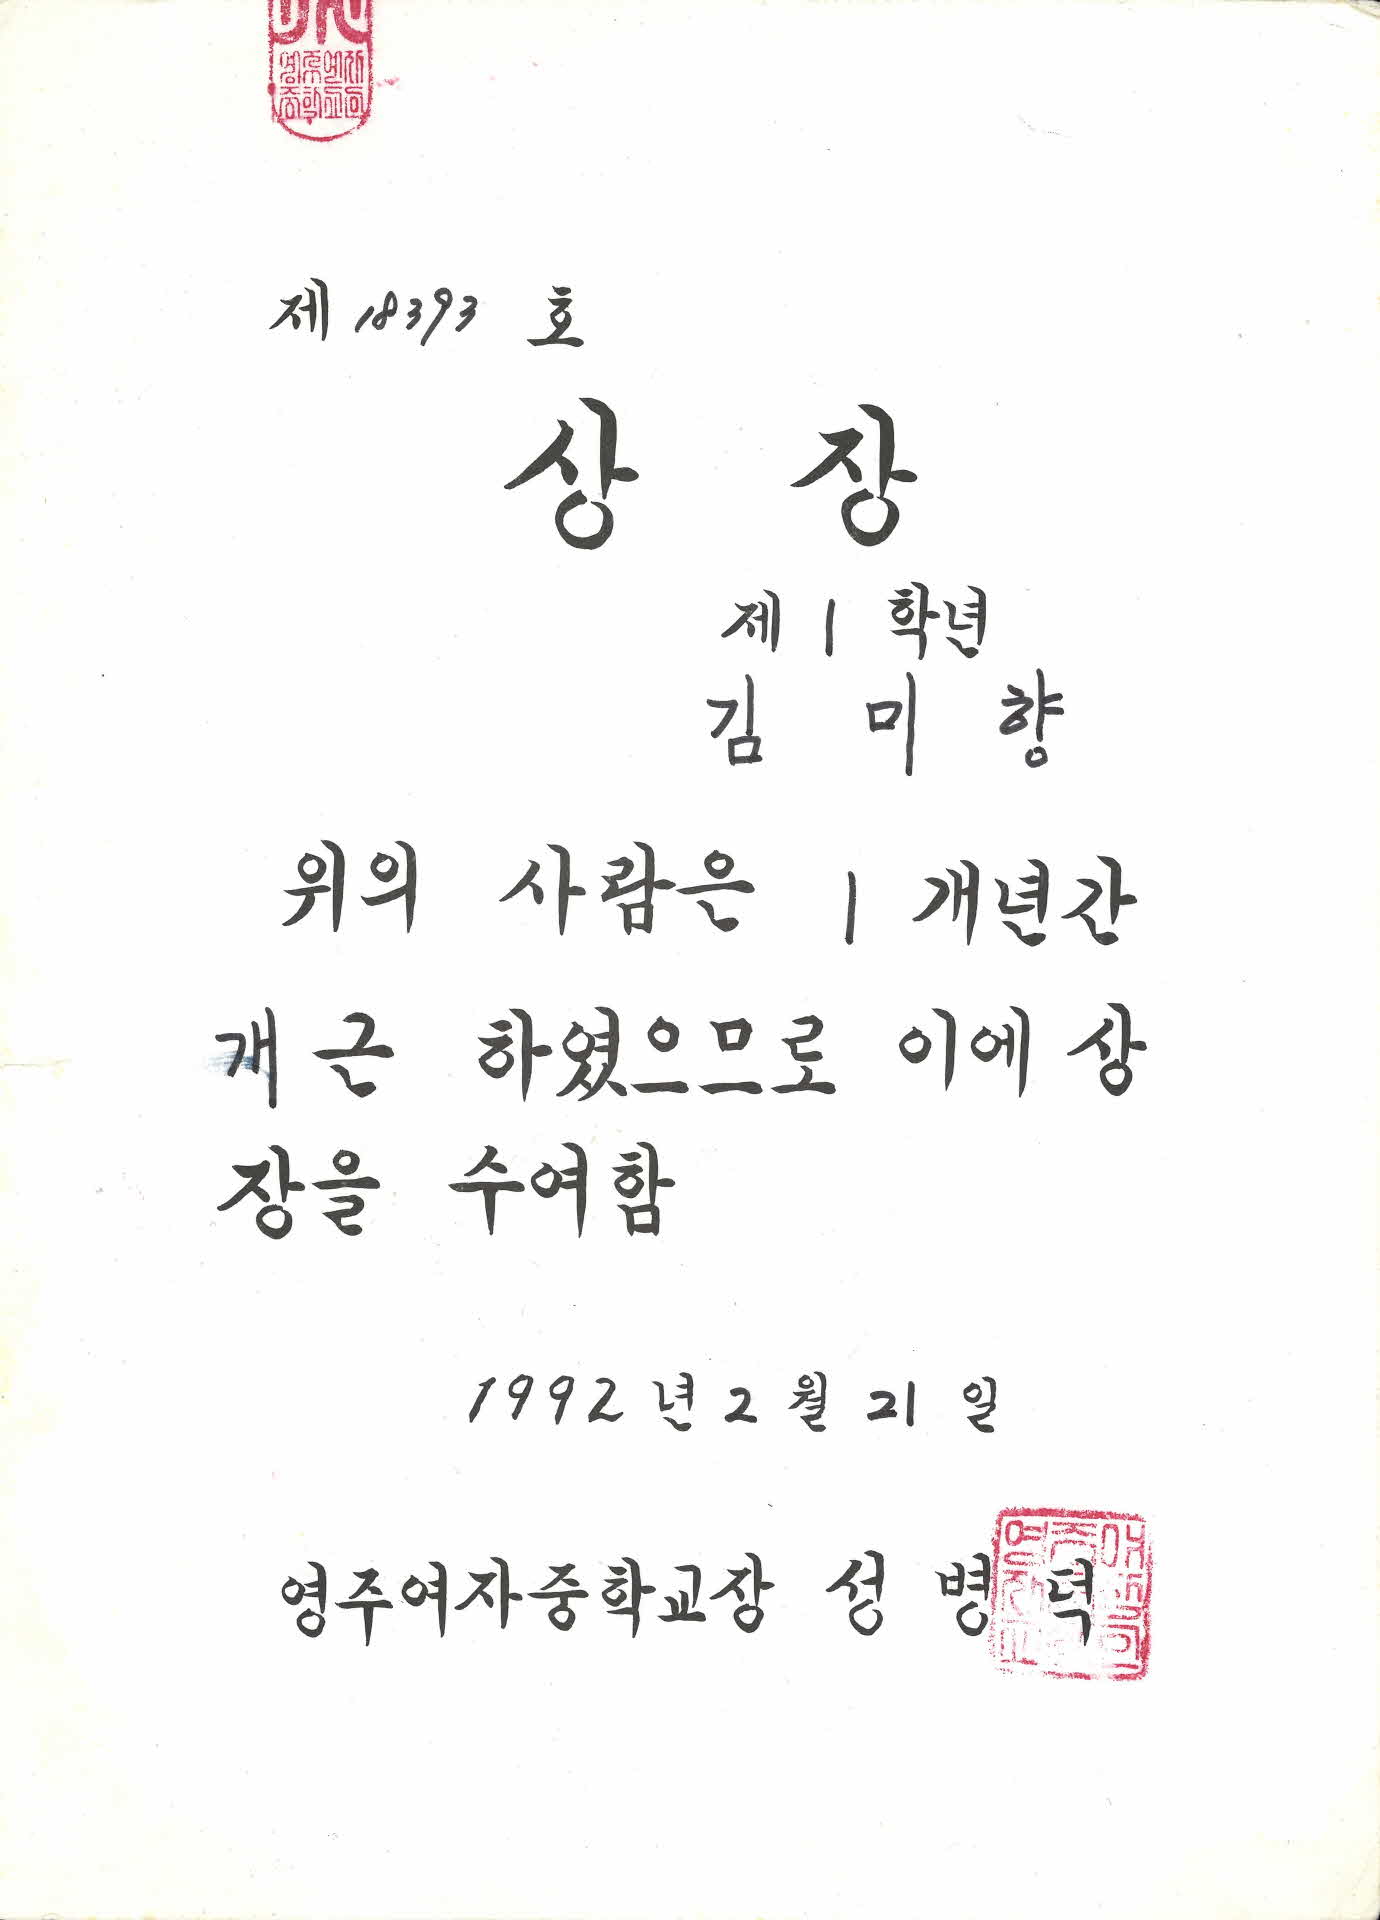 영주여자
중학교인
제 18393 호
상 장
제 1 학년
김 미 향
위의 사람은 1 개년간
개근 하였으므로 이에 상
장을 수여함
1992년 2월 21일
영주여자중학교장 성 병 덕